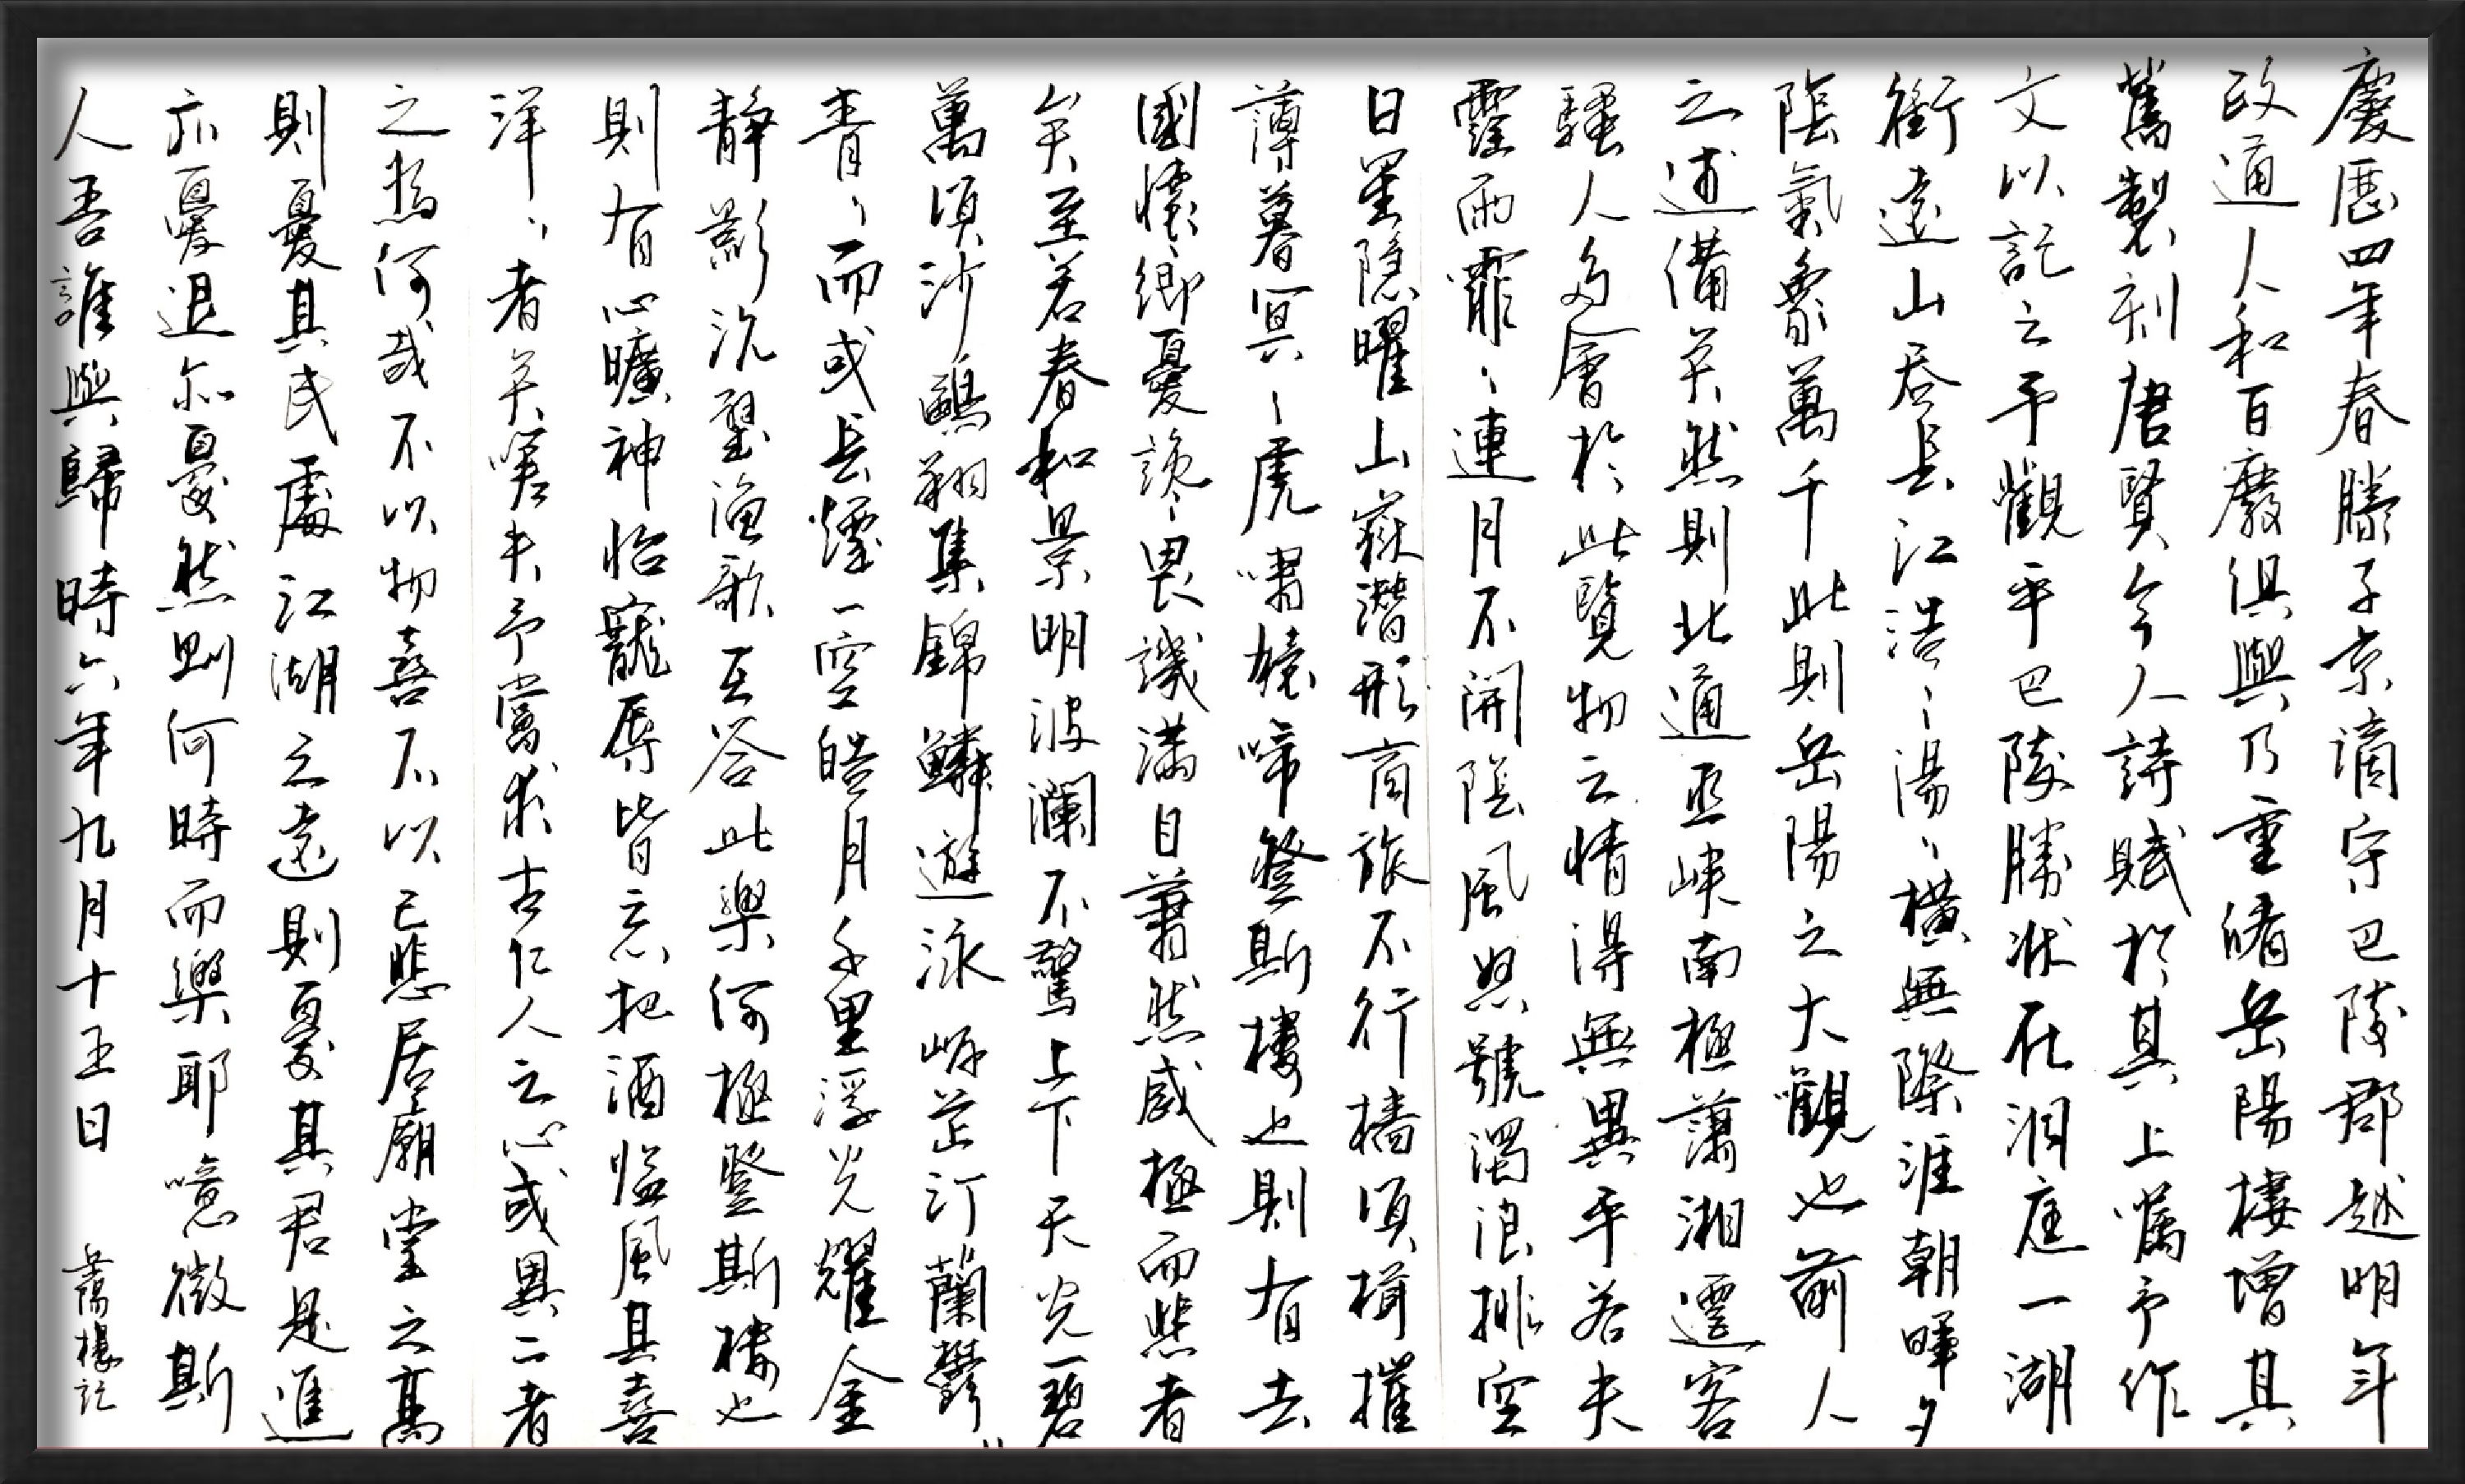 慶歷四年春滕子京謫守巴陵郡越明年
政通人和百廢俱興乃重脩岳陽樓增其
舊製刻唐賢今人詩賦於其上屬予作
文以記之予觀乎巴陵勝狀在洞庭一湖
銜遠山吞長江浩〻湯〻橫無際涯朝暉夕
陰氣象萬千此則岳陽之大觀也前人
之述備矣然則北通巫峽南極瀟湘遷客
騷人多會於此覽物之情得無異乎若夫
霪雨霏〻連月不開陰風怒號濁浪排空
日星隱曜山嶽潛形商旅不行檣傾楫摧
薄暮冥〻虎嘯猿啼登斯樓也則有去
國懷鄉憂讒畏譏滿目蕭然感極而悲者
矣至若春和景明波瀾不驚上下天光一碧
萬頃沙鷗翔集錦鱗遊泳岸芷汀蘭鬱〻
青〻而或長煙一空皓月千里浮光耀金
靜影沉璧漁歌互答此樂何極登斯樓也
則有心曠神怡寵辱皆忘把酒臨風其喜
洋〻者矣嗟夫予嘗求古仁人之心或異二者
之為何哉不以物喜不以己悲居廟堂之高
則憂其民處江湖之遠則憂其君是進
亦憂退亦憂然則何時而樂耶噫微斯
人吾誰與歸時六年九月十五日
岳陽樓記